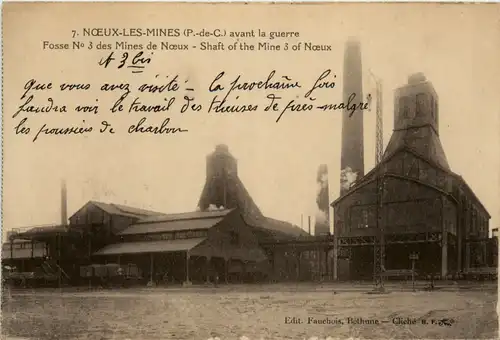 7. NŒUX-LES-MINES (P.-de-C.) avant la guerre
Fosse No 3 des Mines de Nœux - Shaft of the Mine 3 of Nœux
N 3 bis
Que vous avez visité - la prochaine fois
faudra voir le travail des trieuses de près - malgré
les poussiers de charbon
Edit. Fauchois, Béthune - Cliché